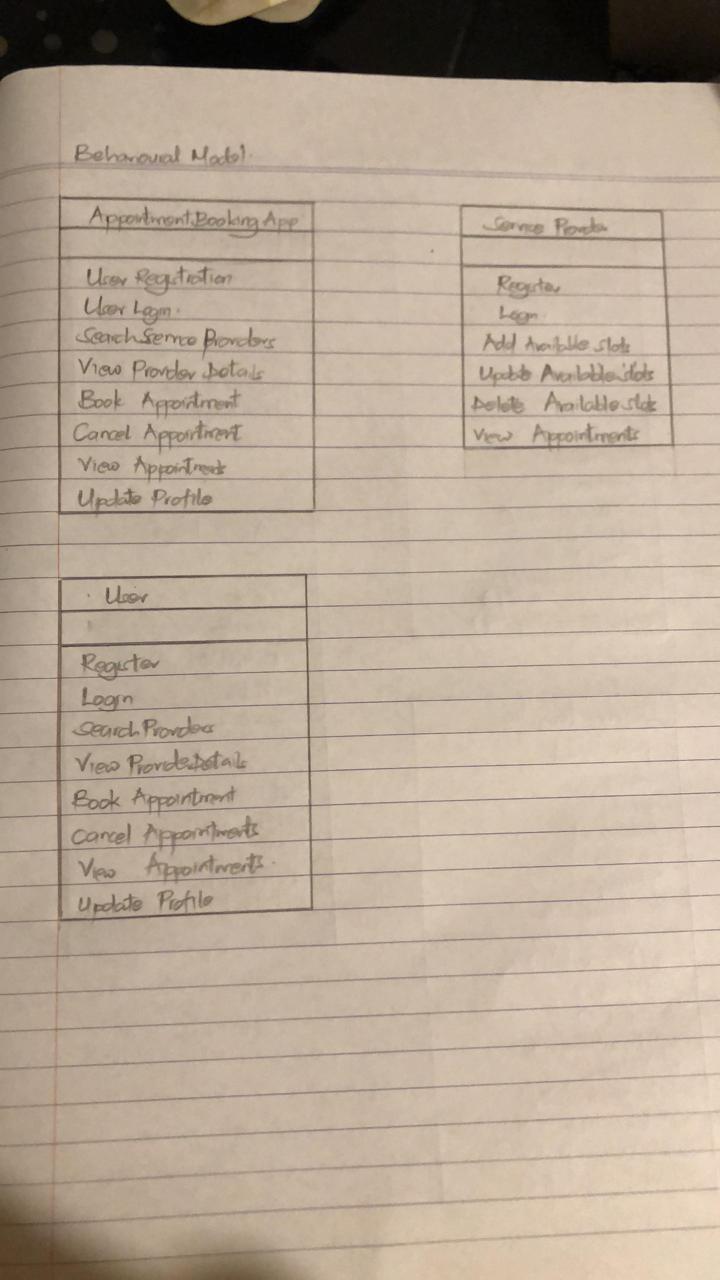 Behavoural Model.
Appointment Booking App
User Registration
User Login.
Search Service Providers
View Provider Details
Book Appointment
Cancel Appointment
View Appointments
Update Profile
Service Provider
Register
Login
Add Available slots
Update Available slots
Delete Available slots
View Appointments
User
Register
Login
Search Providers
View Provider Details
Book Appointment
Cancel Appointments
View Appointments.
Update Profile